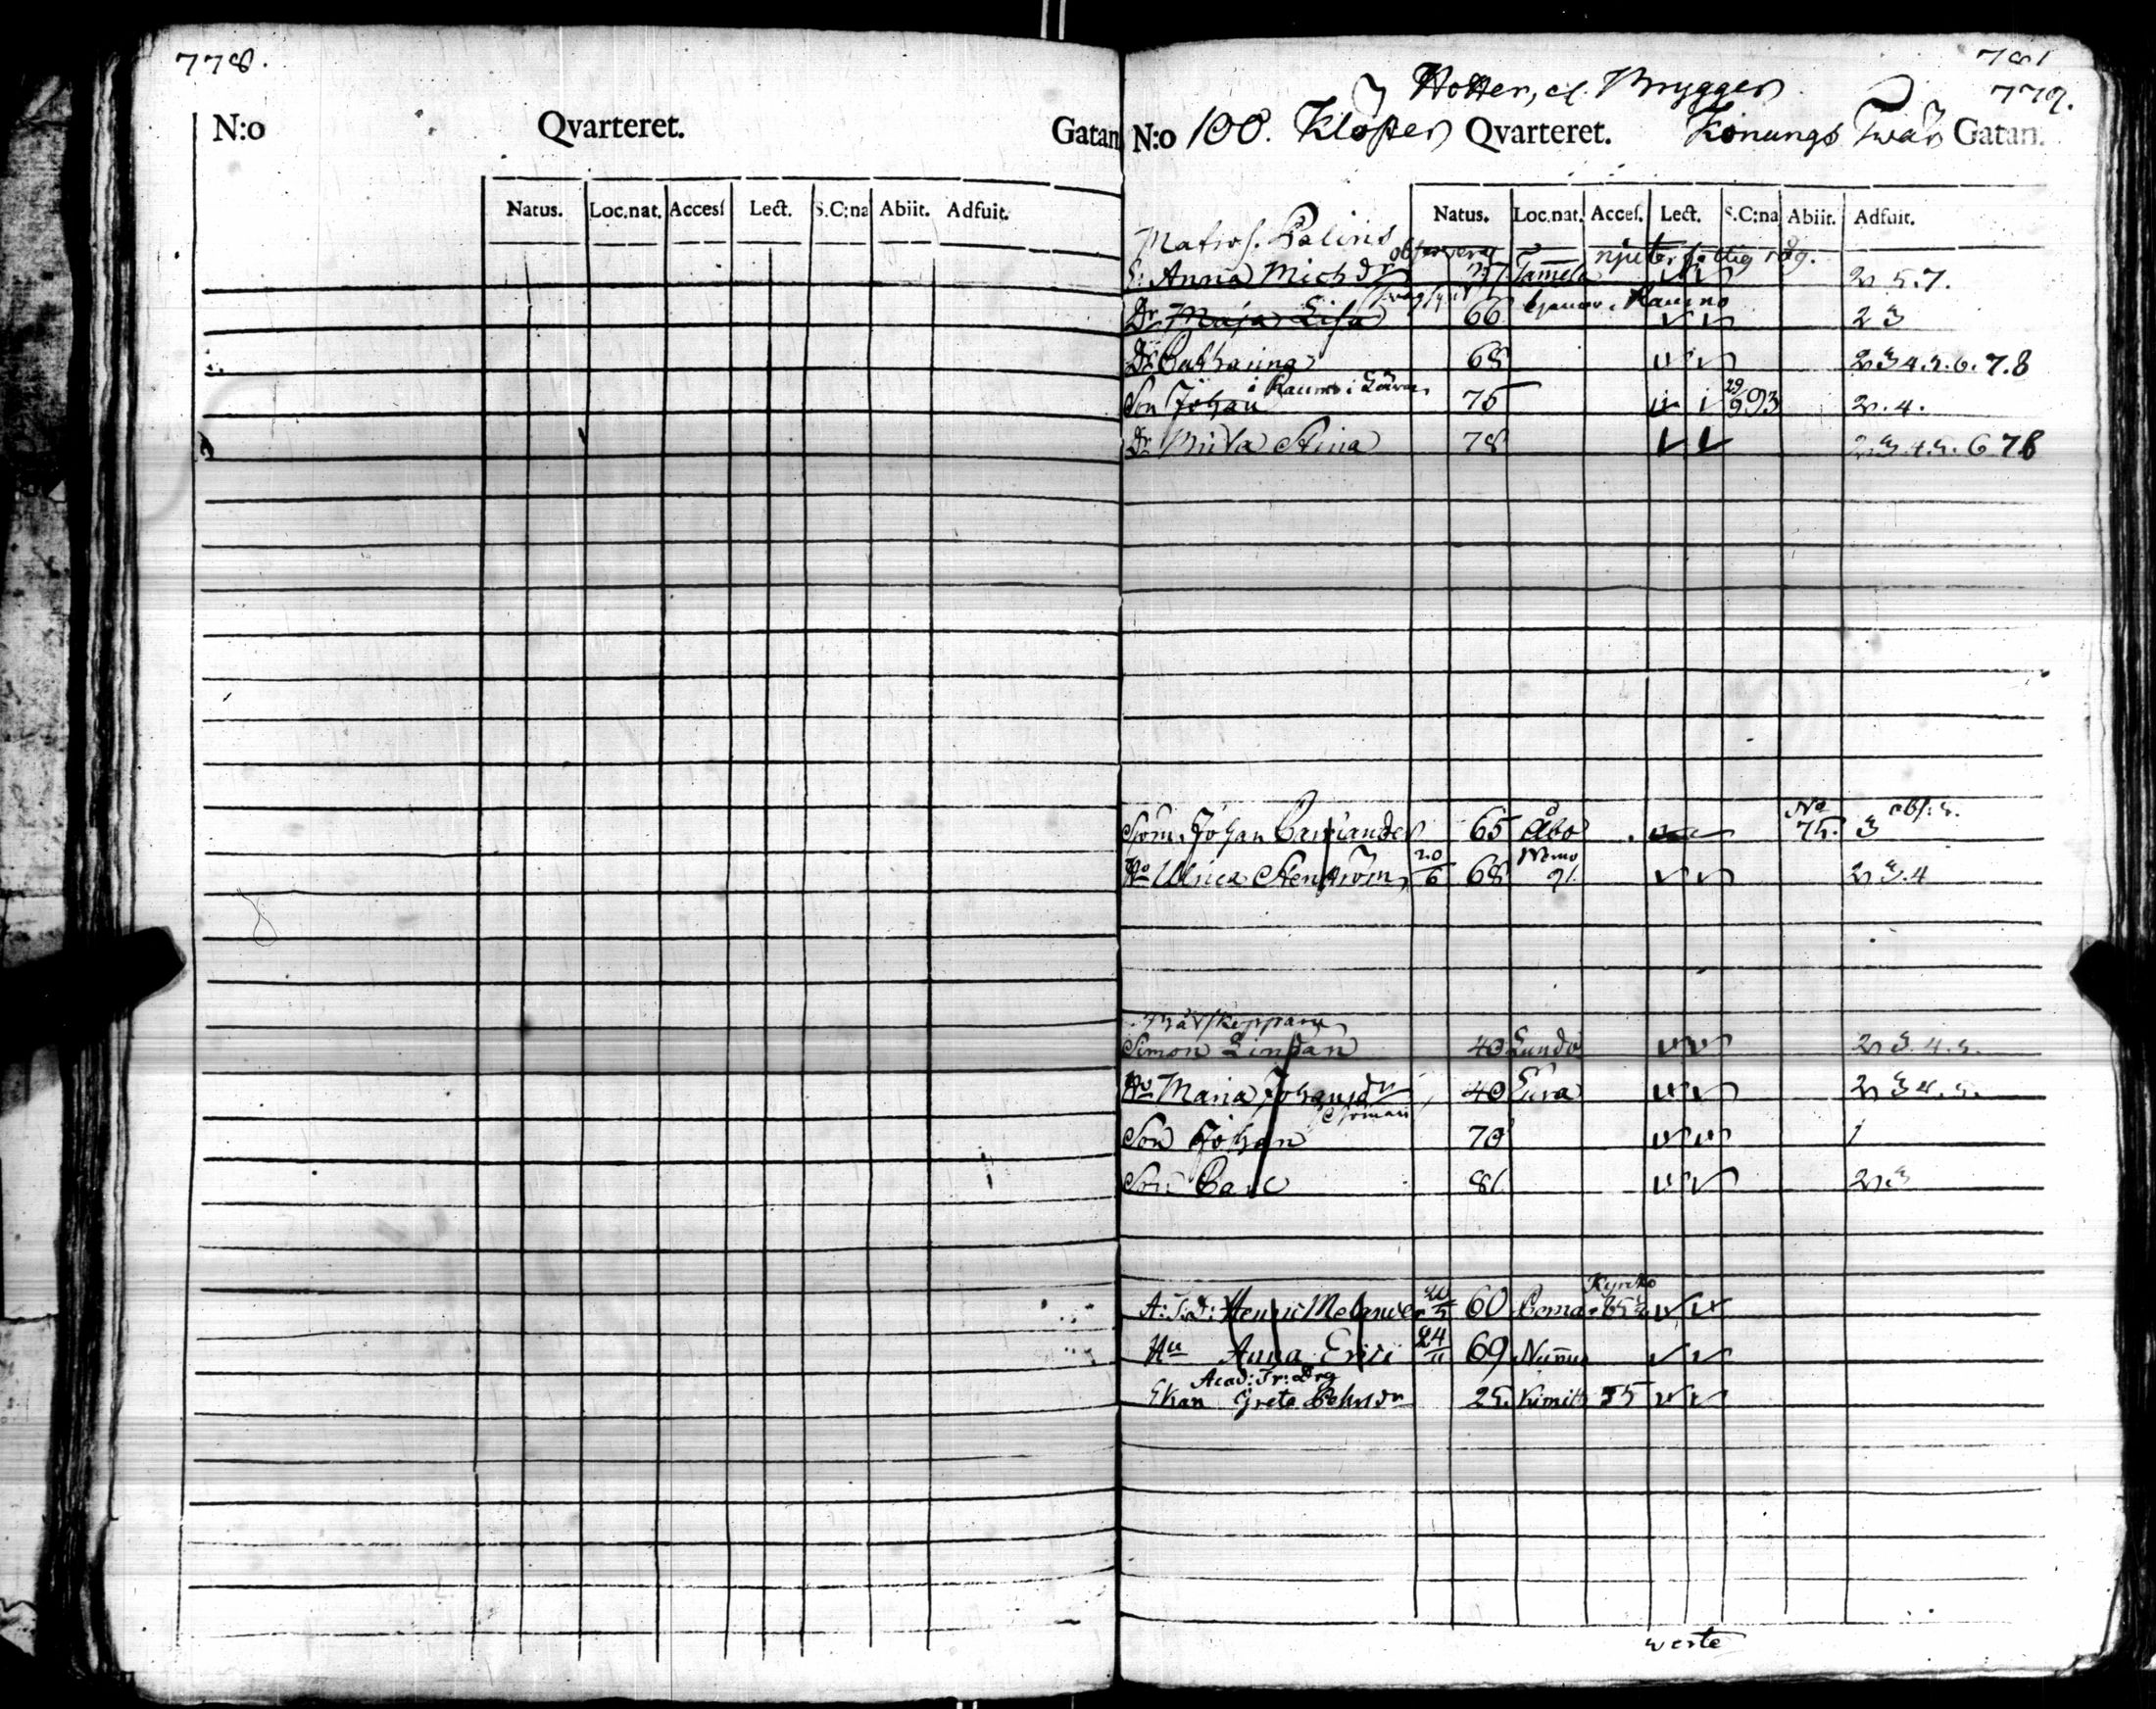 778.
N:o Qvarteret. Gatan
Natus. Loc.nat. Accesſ Lect. S.C:na Abiit. Adfuit.
781
779.
Holter, el. Bryggen
N:o 100. Kloster Qvarteret. Konungs Twär Gatan.
Natus. Loc.nat. Acceſ. Lect. S.C:na Abiit. Adfuit.
Matros. Palins
njuter fattig råg.
E: Anna Michdr 27 Tamela 2 5.7.
Dr Maja Lisa 66 tjenar i Raumo 2 3
Dr Catharina 68 2 3 4.5.6.7.8
i Raumo i Lära
Son Johan 75 29/9 93 2.4.
Dr Brita Stina 78 2.3.4.5.6 7 8
Sjöm. Johan 65 Åbo No 75. 3 obs: 5.
Ho Ulrica Stenström 20/6 68 Nemo 91. 2 3.4
Simon Lindan 40 Lundo 2 3.4.5.
Ho Maria Johansdr 40 Eura 2 3 4.5.
Son Johan 70 1
Son Carl 81 2.3
A:T:D: Henric Melander 20/5 60 Pema
Hu Anna Erici 24/11 69 Nummis
Acad: Tr: Drg
Enkan Greta 25. Kimitto 75
verte